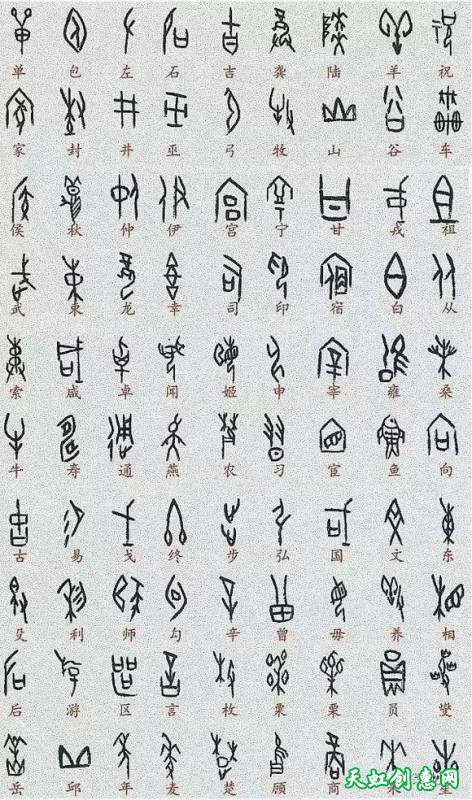 单 包 左 石 吉 龚 陆 羊 祝
家 封 井 巫 弓 牧 山 谷 车
侯 秋 仲 伊 宫 宁 甘 戎 祖
武 束 龙 幸 司 印 宿 白 从
索 戚 卓 闻 姬 申 宰 雍 桑
牛 寿 通 燕 农 习 宦 鱼 向
古 易 戈 终 步 弘 国 文 东
殳 利 师 勾 辛 曾 毋 养 相
后 游 区 言 枚 粟 栗 员 燮
岳 邱 年 麦 楚 顾 商
天虹创意网